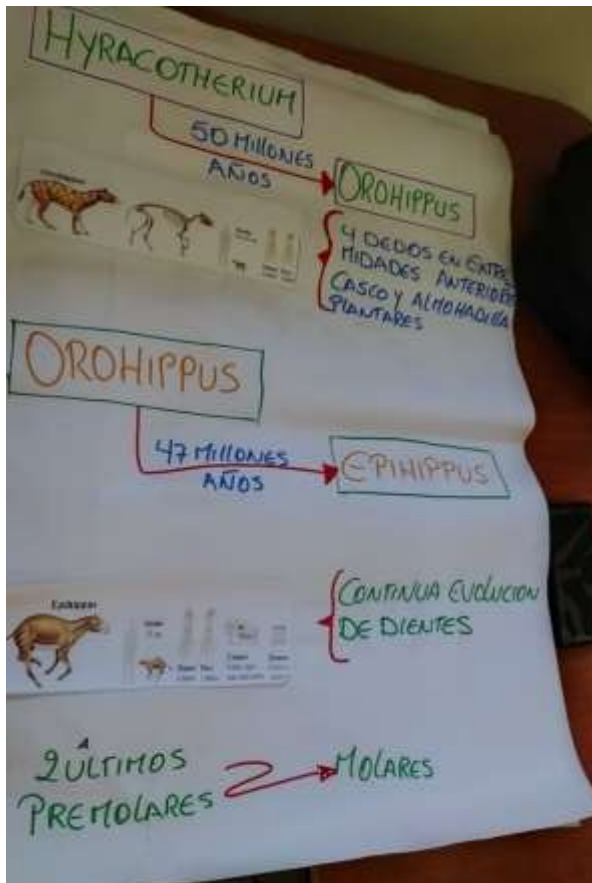 HYRACOTHERIUM
50 MILLONES
AÑOS
OROHIPPUS
4 DEDOS EN EXTRE
MIDADES ANTERIORES
CASCO Y ALMOHADILLA
PLANTARES
OROHIPPUS
47 MILLONES
AÑOS
EPIHIPPUS
Epihippus
CONTINUA EVOLUCION
DE DIENTES
2 ÚLTIMOS
PREMOLARES
MOLARES